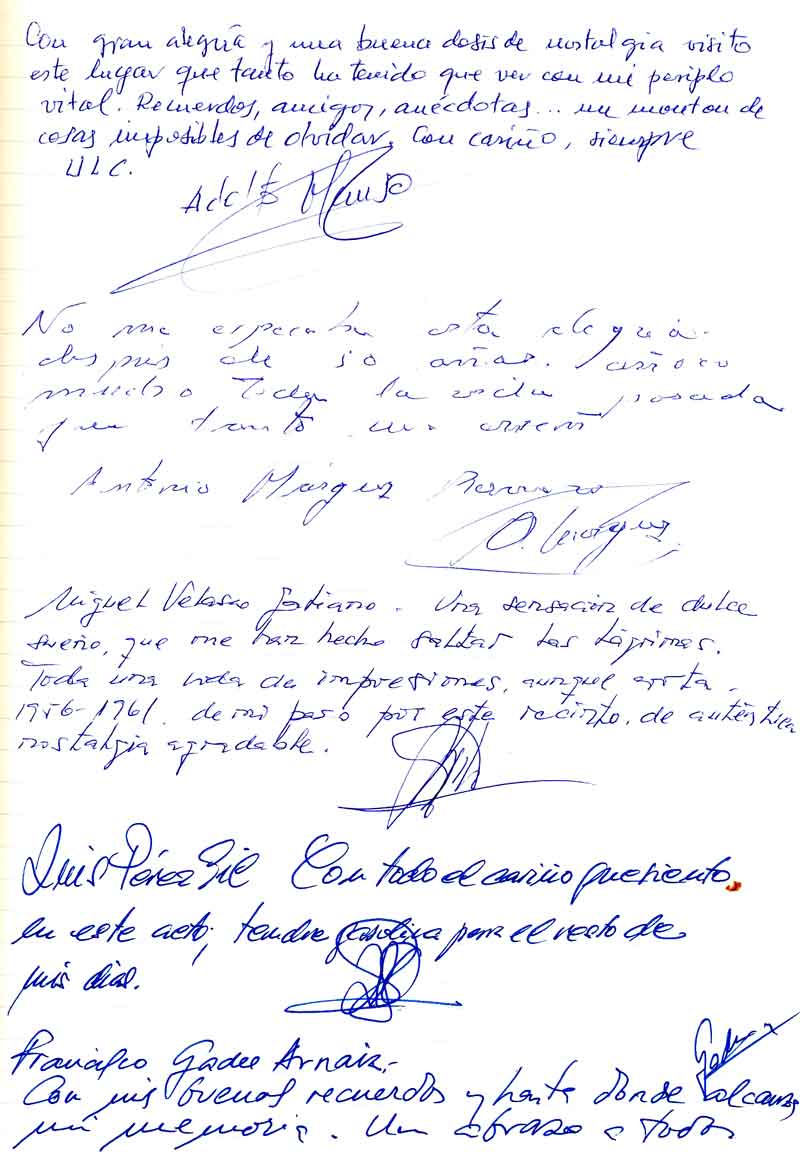 Con gran alegría y una buena dosis de nostalgia visito
este lugar que tanto ha tenido que ver con mi periplo
vital. Recuerdos, amigos, anécdotas... un monton de
cosas imposibles de olvidar. Con cariño, siempre
ULC.
Adolfo
No me esperaba esta alegria
despues de 50 años. añoro
mucho toda la vida pasada
que tanto me
Antonio Márquez
Miguel Velasco Galiano. Una sensación de dulce
sueño, que me han hecho saltar las lágrimas.
Toda una vida de impresiones, aunque corta.
1956-1961. de mi paso por este recinto, de auténtica
nostalgia agradable.
Luis Pérez Gil Con todo el cariño que siento
en este acto, tendre gasolina para el resto de
mis dias.
Francisco Arnaiz.-
Con mis buenos recuerdos y hasta donde alcanza
mi memoria. Un abrazo a todos